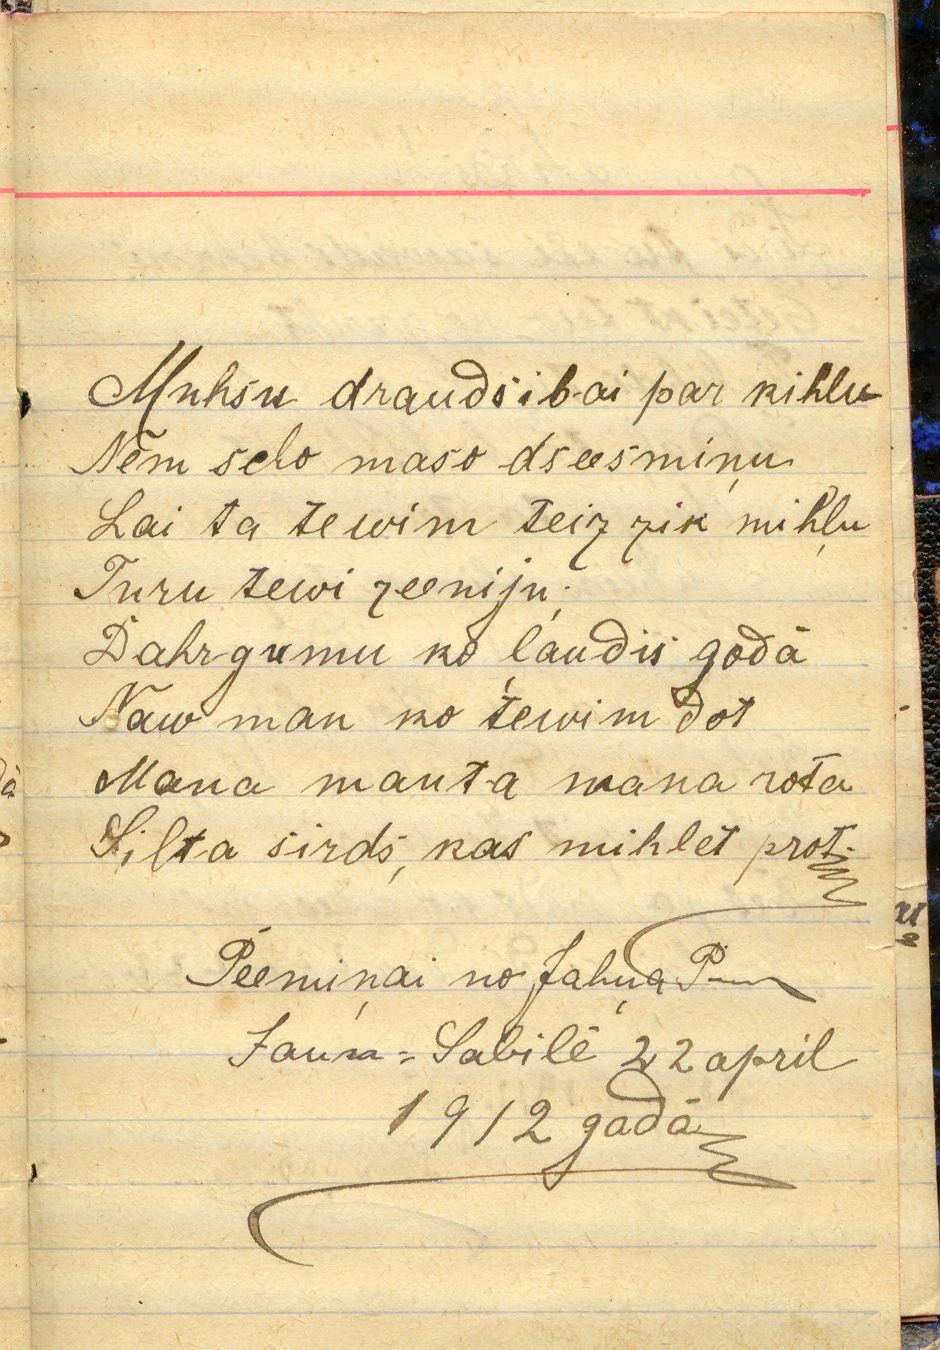 Muhsu draudsibai par kihlu
Nem scho maso dseesmiņu
Lai ta tewim teiz zik mihļu
Turu tewi zeeniju.
Dahrgumu ko ļaudis godā
Naw man ko tewim dot
Mana manta mana rota
Silta sirds, kas mihlet prot.
Peemiņai no Jahņa P
Jaun-Sabilē 22 april
1912 gadā